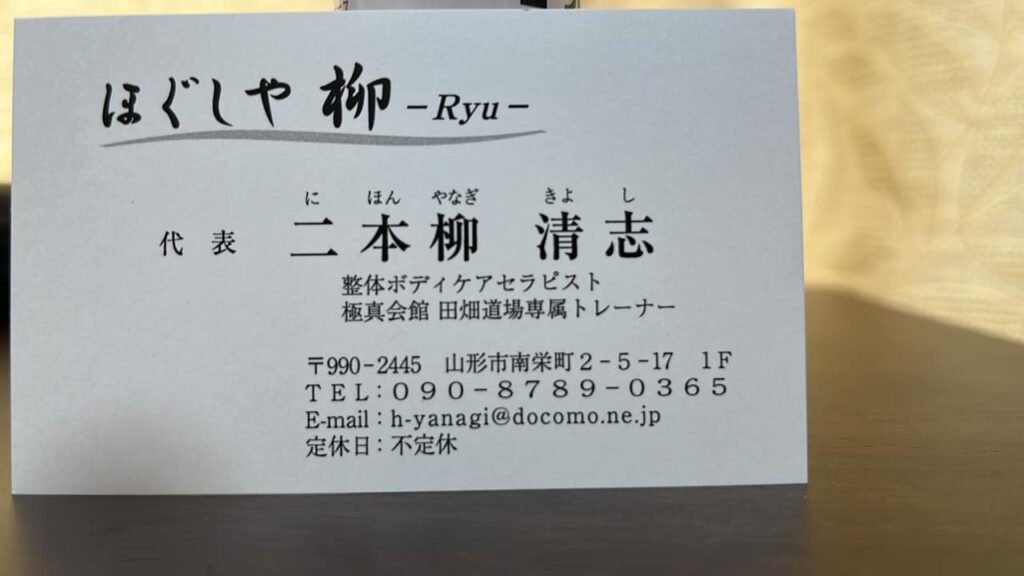 ほぐしや 柳 －Ryu－
に ほん やなぎ きよ し
代 表 二本柳 清志
整体ボディケアセラピスト
極真会館 田畑道場専属トレーナー
〒990－2445 山形市南栄町２－５－17 １Ｆ
ＴＥＬ：０９０－８７８９－０３６５
E-mail：h-yanagi@docomo.ne.jp
定休日：不定休